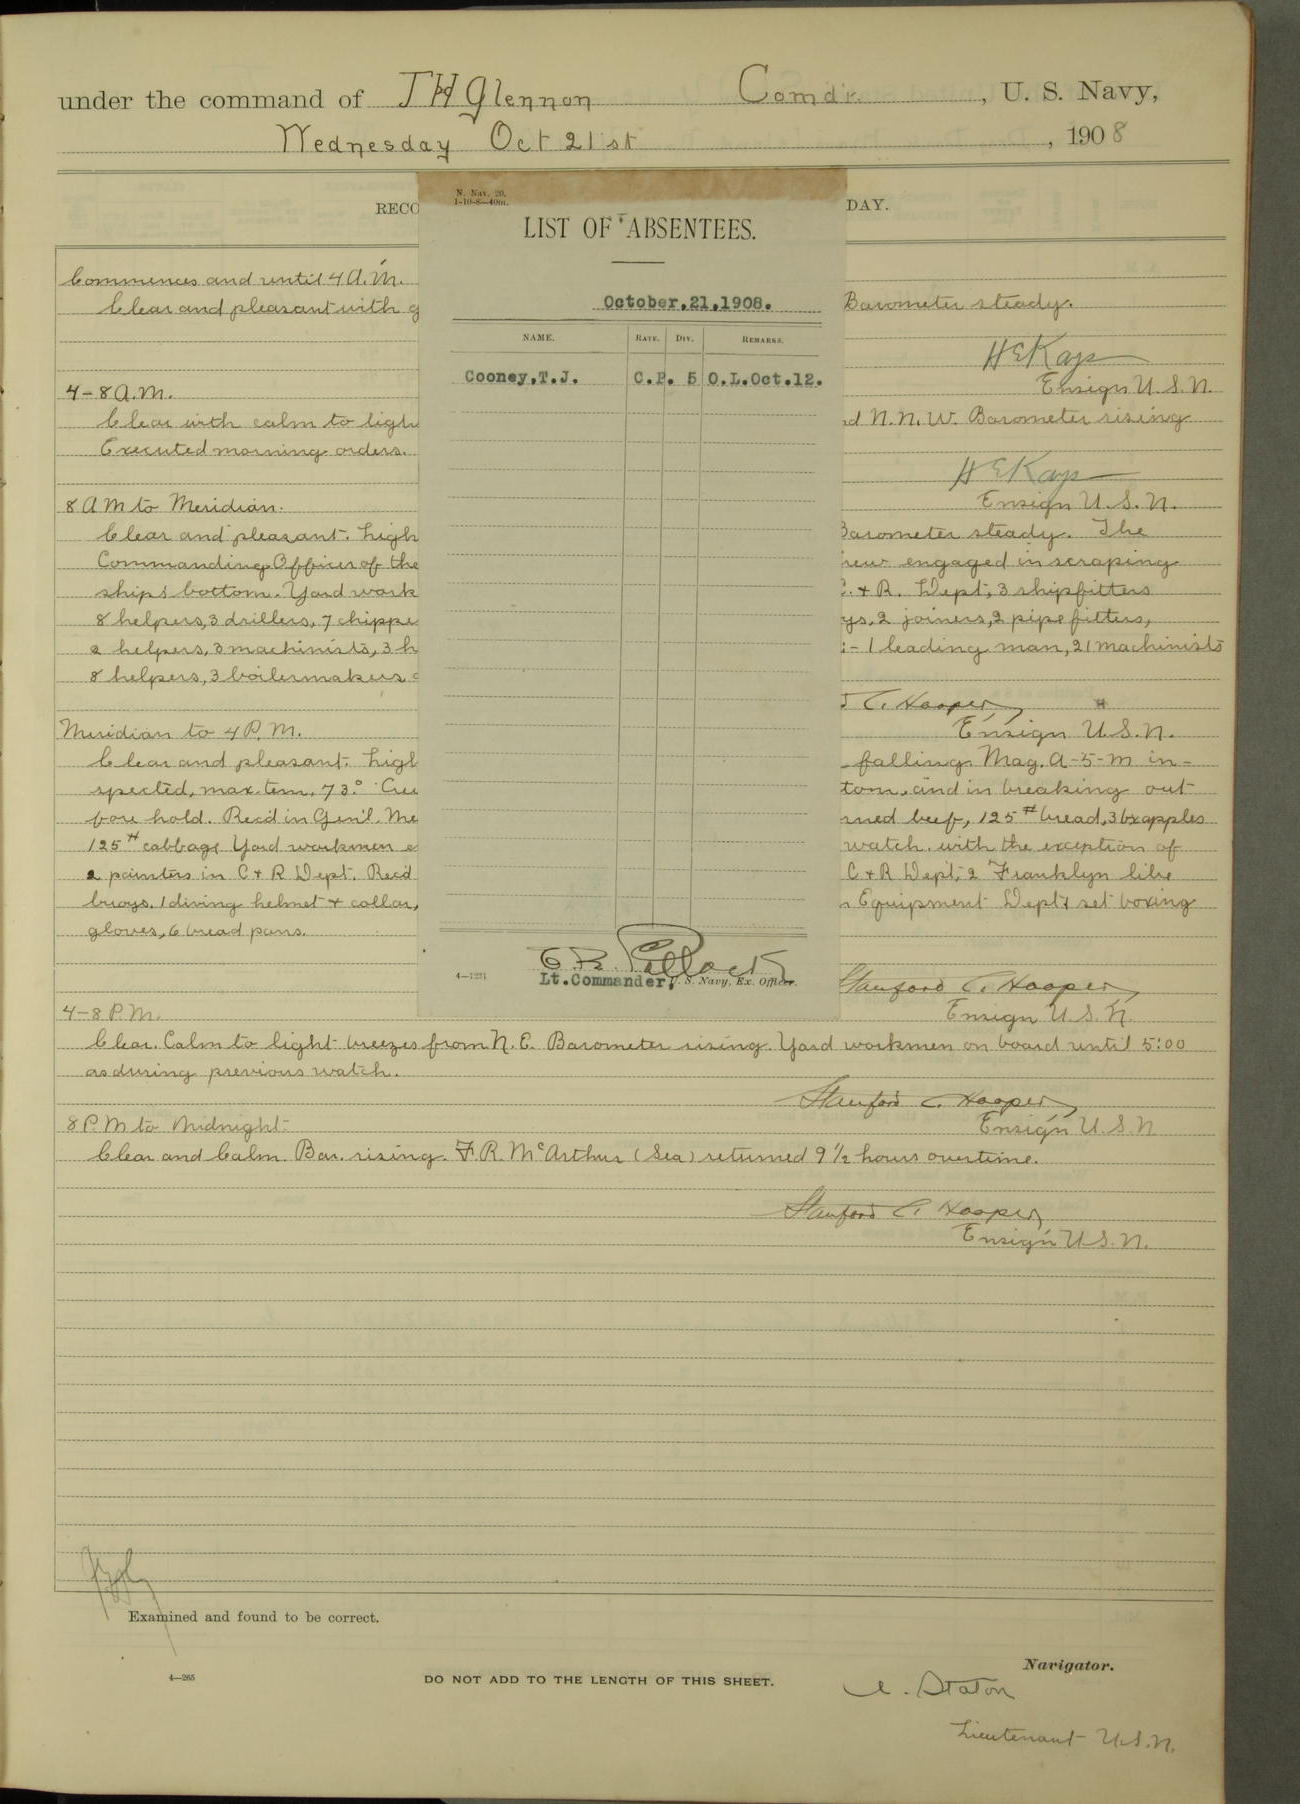 under the command of J H Glennon Comdr. , U. S. Navy,
Wednesday Oct 21st , 1908
RECO
DAY.
N. Nav. 20.
1-10-8—40m.
LIST OF ABSENTEES.
October.21.1908.
NAME. RATE. DIV. REMARKS.
Cooney.T.J. C.P. 5 O.L.Oct.12.
Lt.Commander, U. S. Navy, Ex. Officer.
4—1231
Commences and until 4 A.M.
Clear and pleasant with g
Barometer steady.
H E Kays
Ensign U.S.N.
4-8 A.M.
Clear with calm to ligh
nd N.N.W. Barometer rising
Executed morning orders.
H E Kays
Ensign U.S.N.
8 AM to Meridian.
Clear and pleasant. Ligh
Barometer steady. The
Commanding Officer of the
crew engaged in scraping
ship's bottom. Yard work
C. & R. Dept; 3 shipfitters
8 helpers, 3 drillers, 7 chippe
ys, 2 joiners, 2 pipe fitters,
2 helpers, 3 machinists, 3 h
:- 1 leading man, 21 machinists
8 helpers, 3 boilermakers
C. Hooper
Ensign U.S.N.
Meridian to 4 P.M.
Clear and pleasant. Ligh
falling. Mag. A-5-M in-
spected, max. tem. 73° Cre
tom, and in breaking out
fore hold. Rec'd in Gen'l. Me
rned beef, 125# bread, 3 bx apples
125# cabbage Yard workmen
watch. with the exception of
2 painters in C & R Dept. Rec'd
C & R Dept; 2 Franklyn life
buoys. 1 diving helmet & collar,
n Equipment Dept. 1 set boxing
gloves, 6 bread pans.
Stanford C. Hooper
Ensign U.S.N.
4-8 P.M.
Clear. Calm to light breezes from N.E. Barometer rising. Yard workmen on board until 5:00
as during previous watch.
Stanford C. Hooper
Ensign U.S.N
8 P.M to Midnight.
Clear and Calm. Bar. rising. F.R. McArthur (Sea) returned 9½ hours overtime.
Stanford C. Hooper
Ensign U.S.N.
Examined and found to be correct.
4—265
DO NOT ADD TO THE LENGTH OF THIS SHEET.
Navigator.
A. Staton
Lieutenant U.S.N.